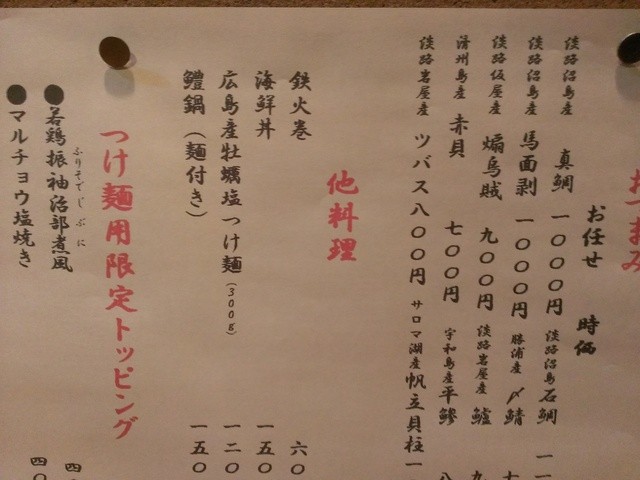 おつまみ
お任せ 時価
淡路沼島産 真鯛 一〇〇〇円 淡路沼島石鯛 一一
淡路沼島産 馬面剥 一〇〇〇円 勝浦産 〆鯖 七
淡路仮屋産 煽烏賊 九〇〇円 淡路岩屋産 鱸 九
済州島産 赤貝 七〇〇円 宇和島産平鰺 八
淡路岩屋産 ツバス八〇〇円 サロマ湖産帆立貝柱一
他料理
鉄火巻 六〇
海鮮丼 一五〇
広島産牡蠣塩つけ麺(300g) 一二〇
鱧鍋(麺付き) 一五〇
つけ麺用限定トッピング
●若鶏振袖治部煮風 四〇
ふりそでじぶに
●マルチョウ塩焼き 四〇